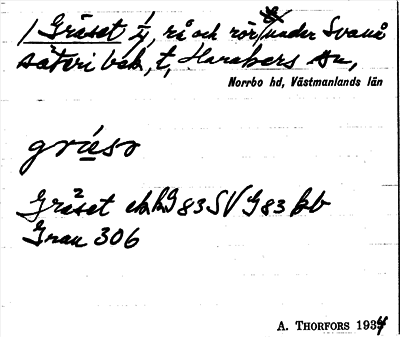 1 Gräset 1/4, rå och rör, under Svanå
säteri bek, t, Harakers sn,
Norrbo hd, Västmanlands län
gräsə
Gräset ekkG83SVG83kb
Gran 306
A. THORFORS 1934